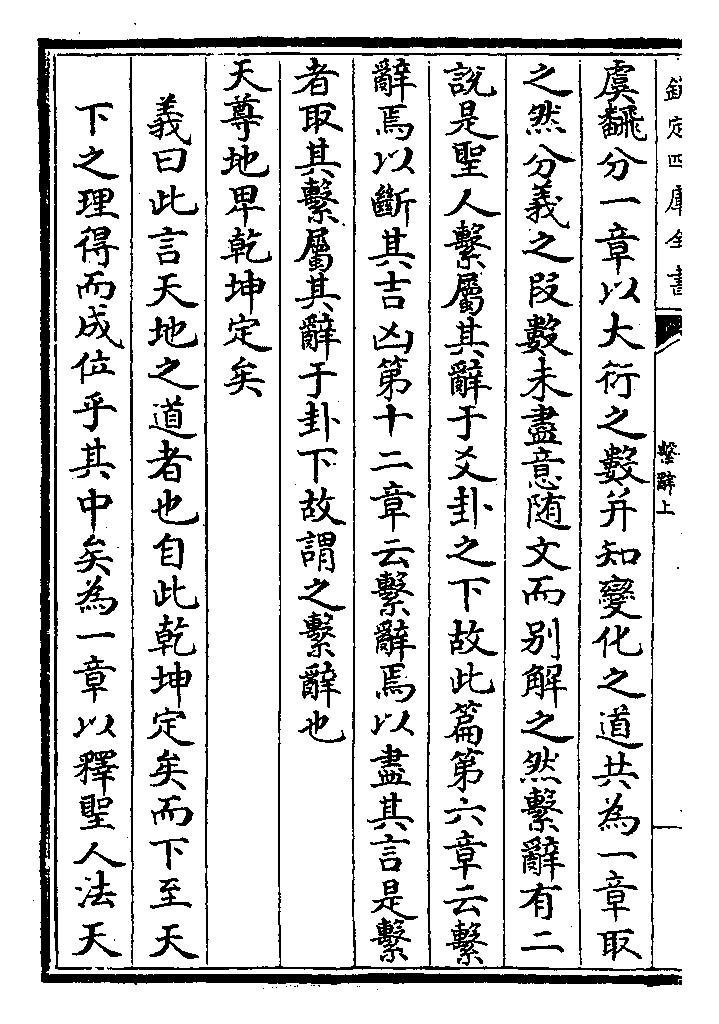 欽定四庫全書
繫辭上
虞翻分一章以大衍之數并知變化之道共為一章取
之然分義之段數未盡意随文而别解之然繫辭有二
說是聖人繫屬其辭于爻卦之下故此篇第六章云繫
辭焉以斷其吉凶第十二章云繫辭焉以盡其言是繫
者取其繫屬其辭于卦下故謂之繫辭也
天尊地卑乾坤定矣
義曰此言天地之道者也自此乾坤定矣而下至天
下之理得而成位乎其中矣為一章以釋聖人法天